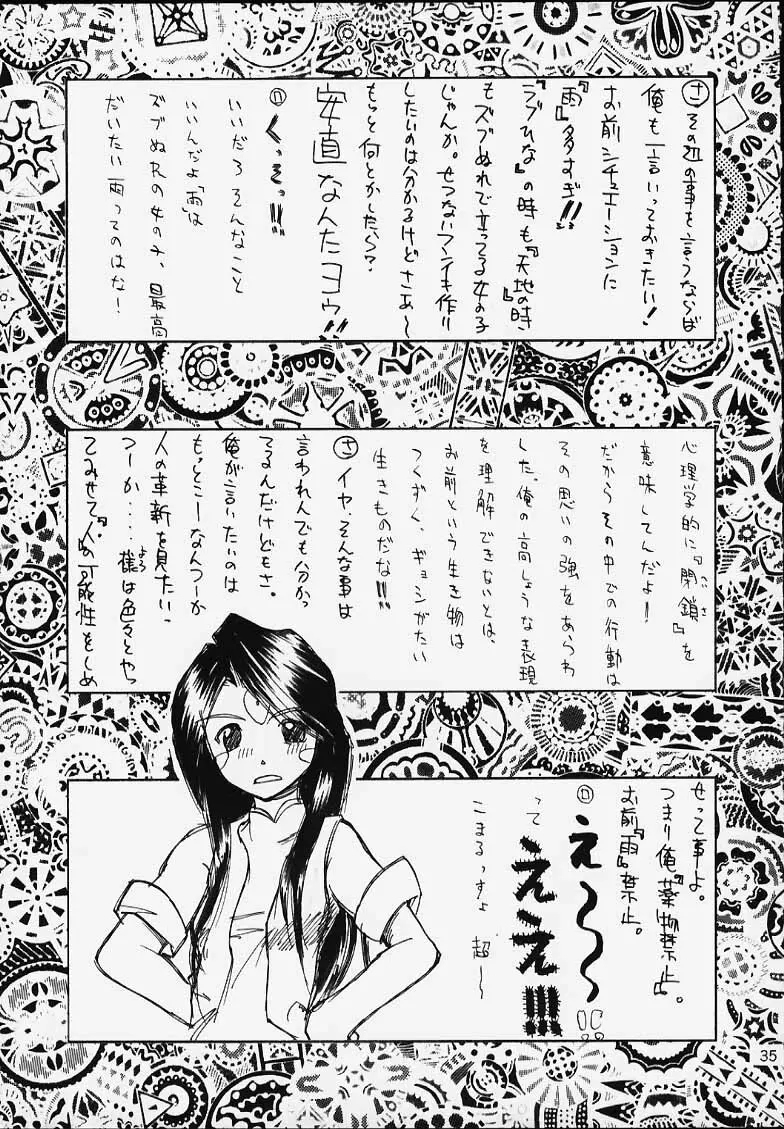 さ その辺の事を言うならば
俺も一言いっておきたい!
お前シチュエーションに
『雨』多すぎ!!
『ラブひな』の時も『天地』の時
もズブぬれで立ってる女の子
じゃんか。せつないフンイキ作り
したいのは分かるけどさあ〜
もっと何とかしたら?
安直なんだヨゥ!!
ロ くっそっ!!
いいだろそんなこと
いいんだよ「雨」は
ズブぬれの女の子、最高
だいたい雨ってのはな!
心理学的に『閉鎖』を
へいさ
意味してんだよ!
だからその中での行動は
その思いの強をあらわ
した。俺の高しょうな表現
を理解できないとは、
お前という生き物は
つくずく、ギョシがたい
生きものだな!!
さ イヤ、そんな事は
言われんでも分かっ
てるんだけどもさ。
俺が言いたいのは
もっとこーなんつーか
人の革新を見たい、
つーか‥‥様は色々とやっ
よう
てみせて『人』の可能性をしめ
せって事よ。
つまり俺『薬物禁止』。
お前『雨』禁止。
ロ え〜〜〜!!
って
ええ!!!
こまるっすよ 超〜
35